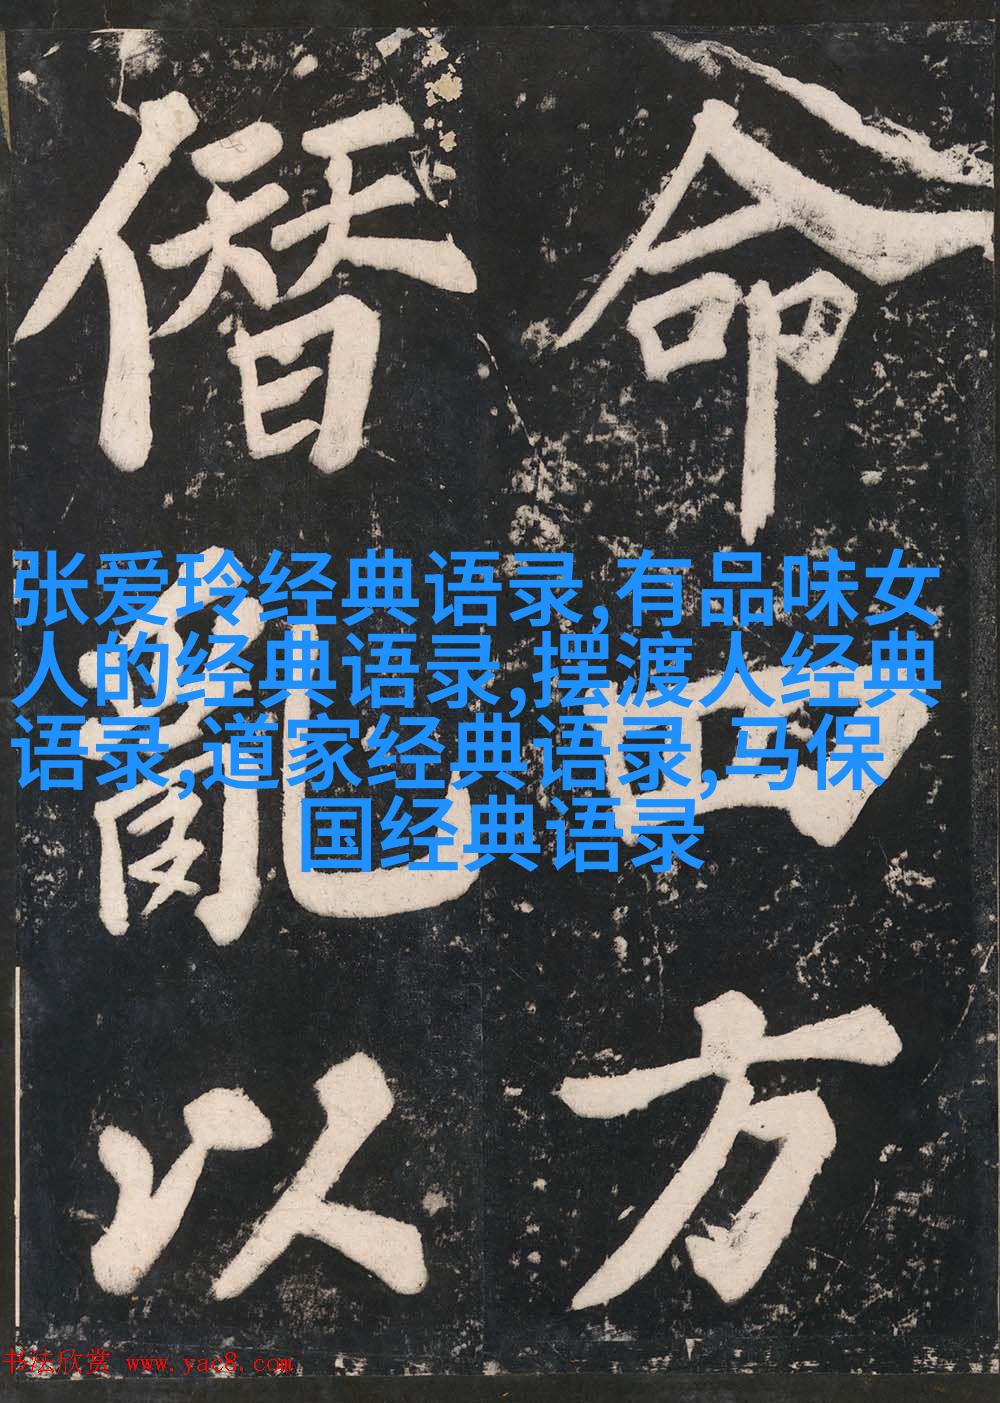 命四方
僭亂以
张爱玲经典语录,有品味女
人的经典语录,摆渡人经典
语录,道家经典语录,马保
国经典语录
书法欣赏 www.yac8.com